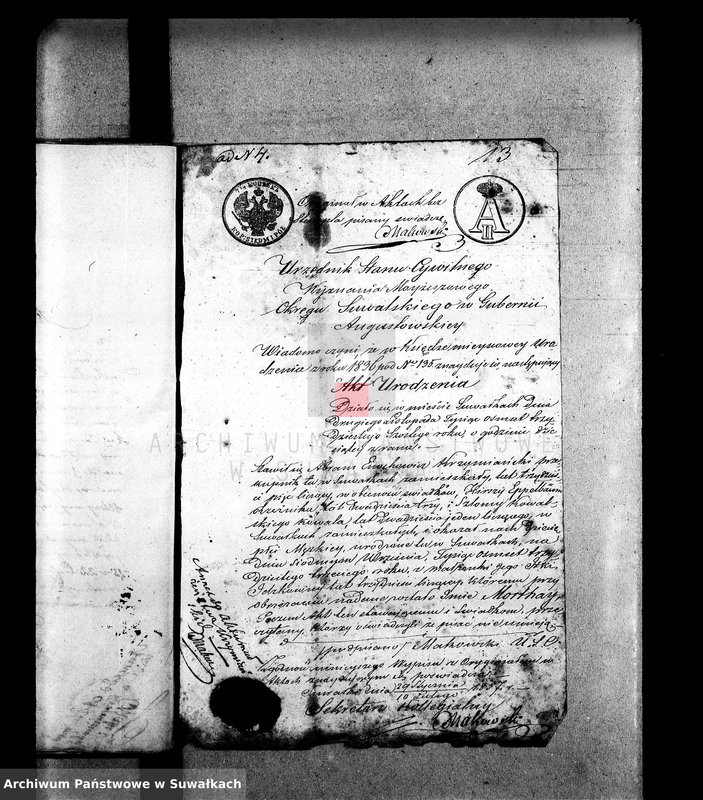 ad N 4.
13
7½ KOPIEJKA
A
II
Oryginał w Aktach bez
stempla pisany zwiadcza
Makowski
Urzędnik Stanu Cywilnego
Wyznania Moyżeszowego
Okręgu Suwalskiego w Gubernii
Augustowskiey
Wiadomo czyni że w Księdze mieyscowey Uro-
dzenia z roku 1836 pod Nº 135 znayduje się następujący
Akt Urodzenia
Działo się w mieście Suwałkach Dnia
drugiego Listopada Tysiąc osmset trzy-
dziestego szóstego roku, o godzinie
z rana.
Stawił się Abram Krzymiański prze-
kupnik tu w Suwałkach zamieszkały, lat trzydzieś-
ci pięć liczący, w obecności świadków, Hirszy Eppelbaum
lat dwadzieścia trzy, i Szlomy Kowal-
skiego kowala, lat dwadzieścia jeden liczącego, w
Suwałkach zamieszkałych, i okazał nam Dziecię
płci Męzkiey, urodzone tu w Suwałkach, na
dniu Siodmym Września, Tysiąc osmset trzy-
dziestego trzeciego roku, z małżonki jego
Ickowny lat trzydzieści liczącey, któremu przy
obrzezaniu nadane zostało Imie Morthay
Poczem Akt ten stawającemu i świadkom prze-
czytany, którzy oświadczyli że pisać nie umieją
/podpisano/ Makowski U.S.C.
Zgodność ninieyszego Wypisu z Oryginałem w
Aktach znaydującym się poświadcza
Suwałki dnia 29 Stycznia / 10 Lutego 1857 r.
Sekretarz Kollegialny
Makowski
ARCHIWUM PAŃSTWOWE
W
Archiwum Państwowe w Suwałkach